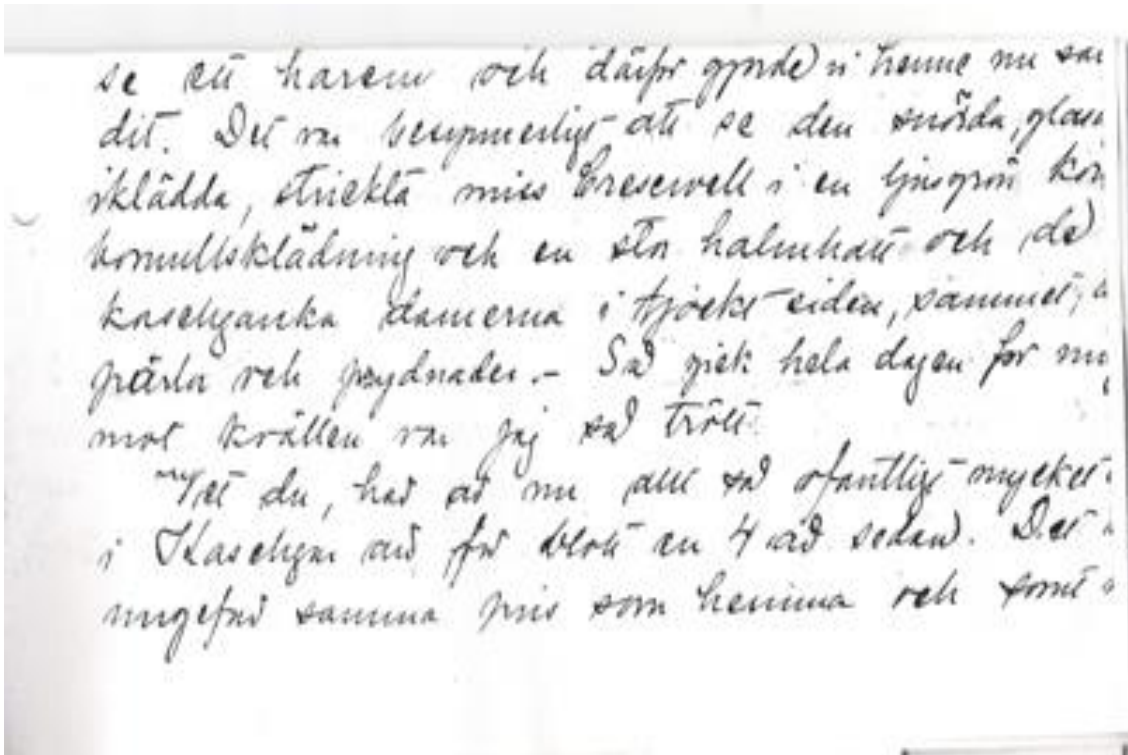 se ett harem och därför gjorde vi henne nu
dit. Det var besynnerligt att se den snörda,
iklädda, strickta miss Cresswell i en ljusgrön
bomullsklädning och en stor halmhatt och de
kaschganska damerna i tjockt siden, sammet,
pärlor och prydnader.- Så gick hela dagen för
mot kvällen var jag så trött.
Vet du, här är nu allt så ofantligt mycket
i Kaschgar än för blott en 4 år sedan. Det
ungefär samma pris som hemma och somt